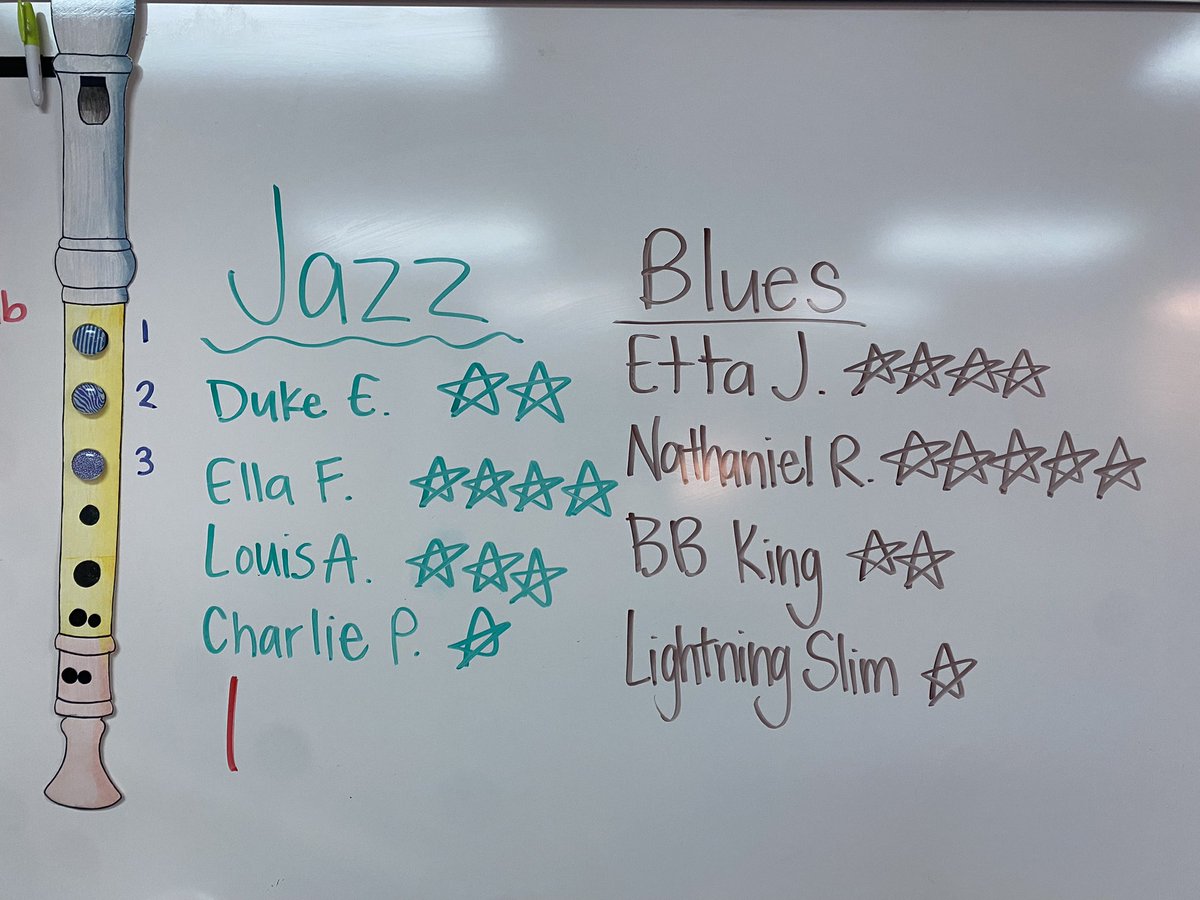 b
1
2
3
Jazz
Duke E. ☆☆
Ella F. ☆☆☆☆
Louis A. ☆☆☆
Charlie P. ☆
Blues
Etta J. ☆☆☆☆
Nathaniel R. ☆☆☆☆☆
BB King ☆☆
Lightning Slim ☆